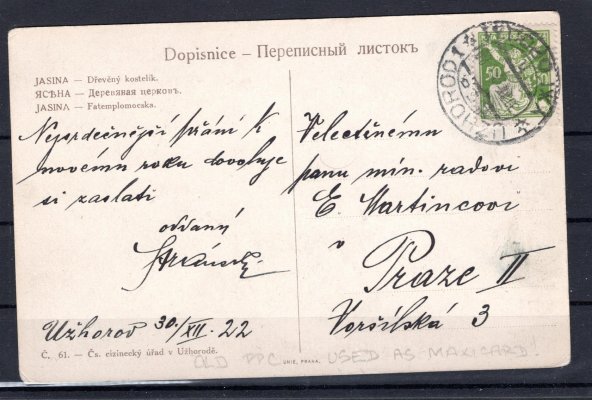 Dopisnice – Переписный листокъ
JASINA – Dřevěný kostelík.
ЯСѢНА — Деревяная церковъ.
JASINA : Fatemplomocska.
Nejsrdečnější přání k
novému roku dovoluje
si zaslati
oddaný
Užhorod 30./XII. 22
Č. 61. – Čs. cizinecký úřad v Užhorodě.
UNIE, PRAHA.
UŽHOROD 1
50
Velectěnému
panu min. radovi
E. Martincovi
v
Praze II
Voršilská 3
OLD PPC USED AS MAXICARD!